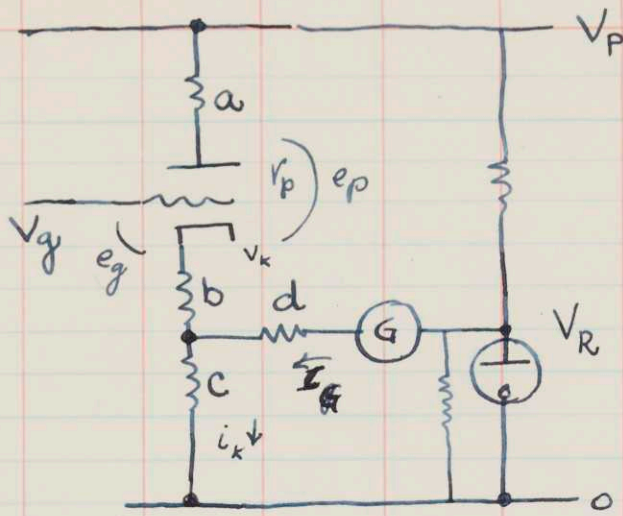 V_P
a
r_p
e_p
V_g
e_g
v_k
b
d
G
V_R
c
I_G
i_k ↓
0